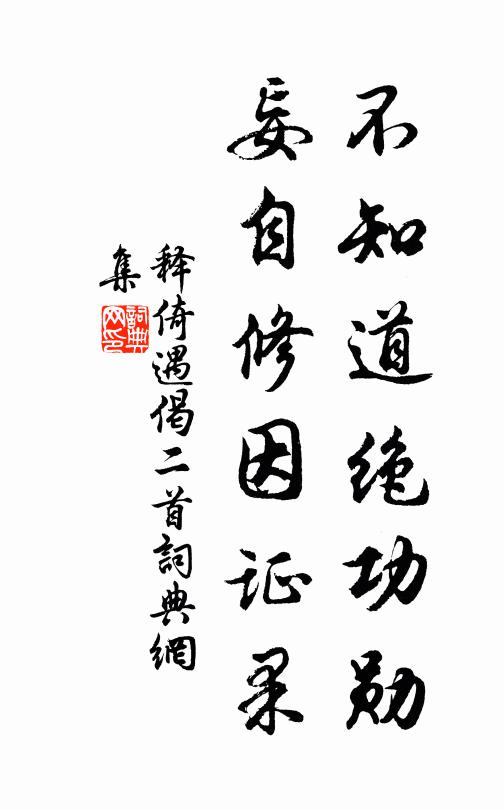 不知道绝功勋
妄自修因证果
释倚遇偈二首詞典網
集
詞典
网印